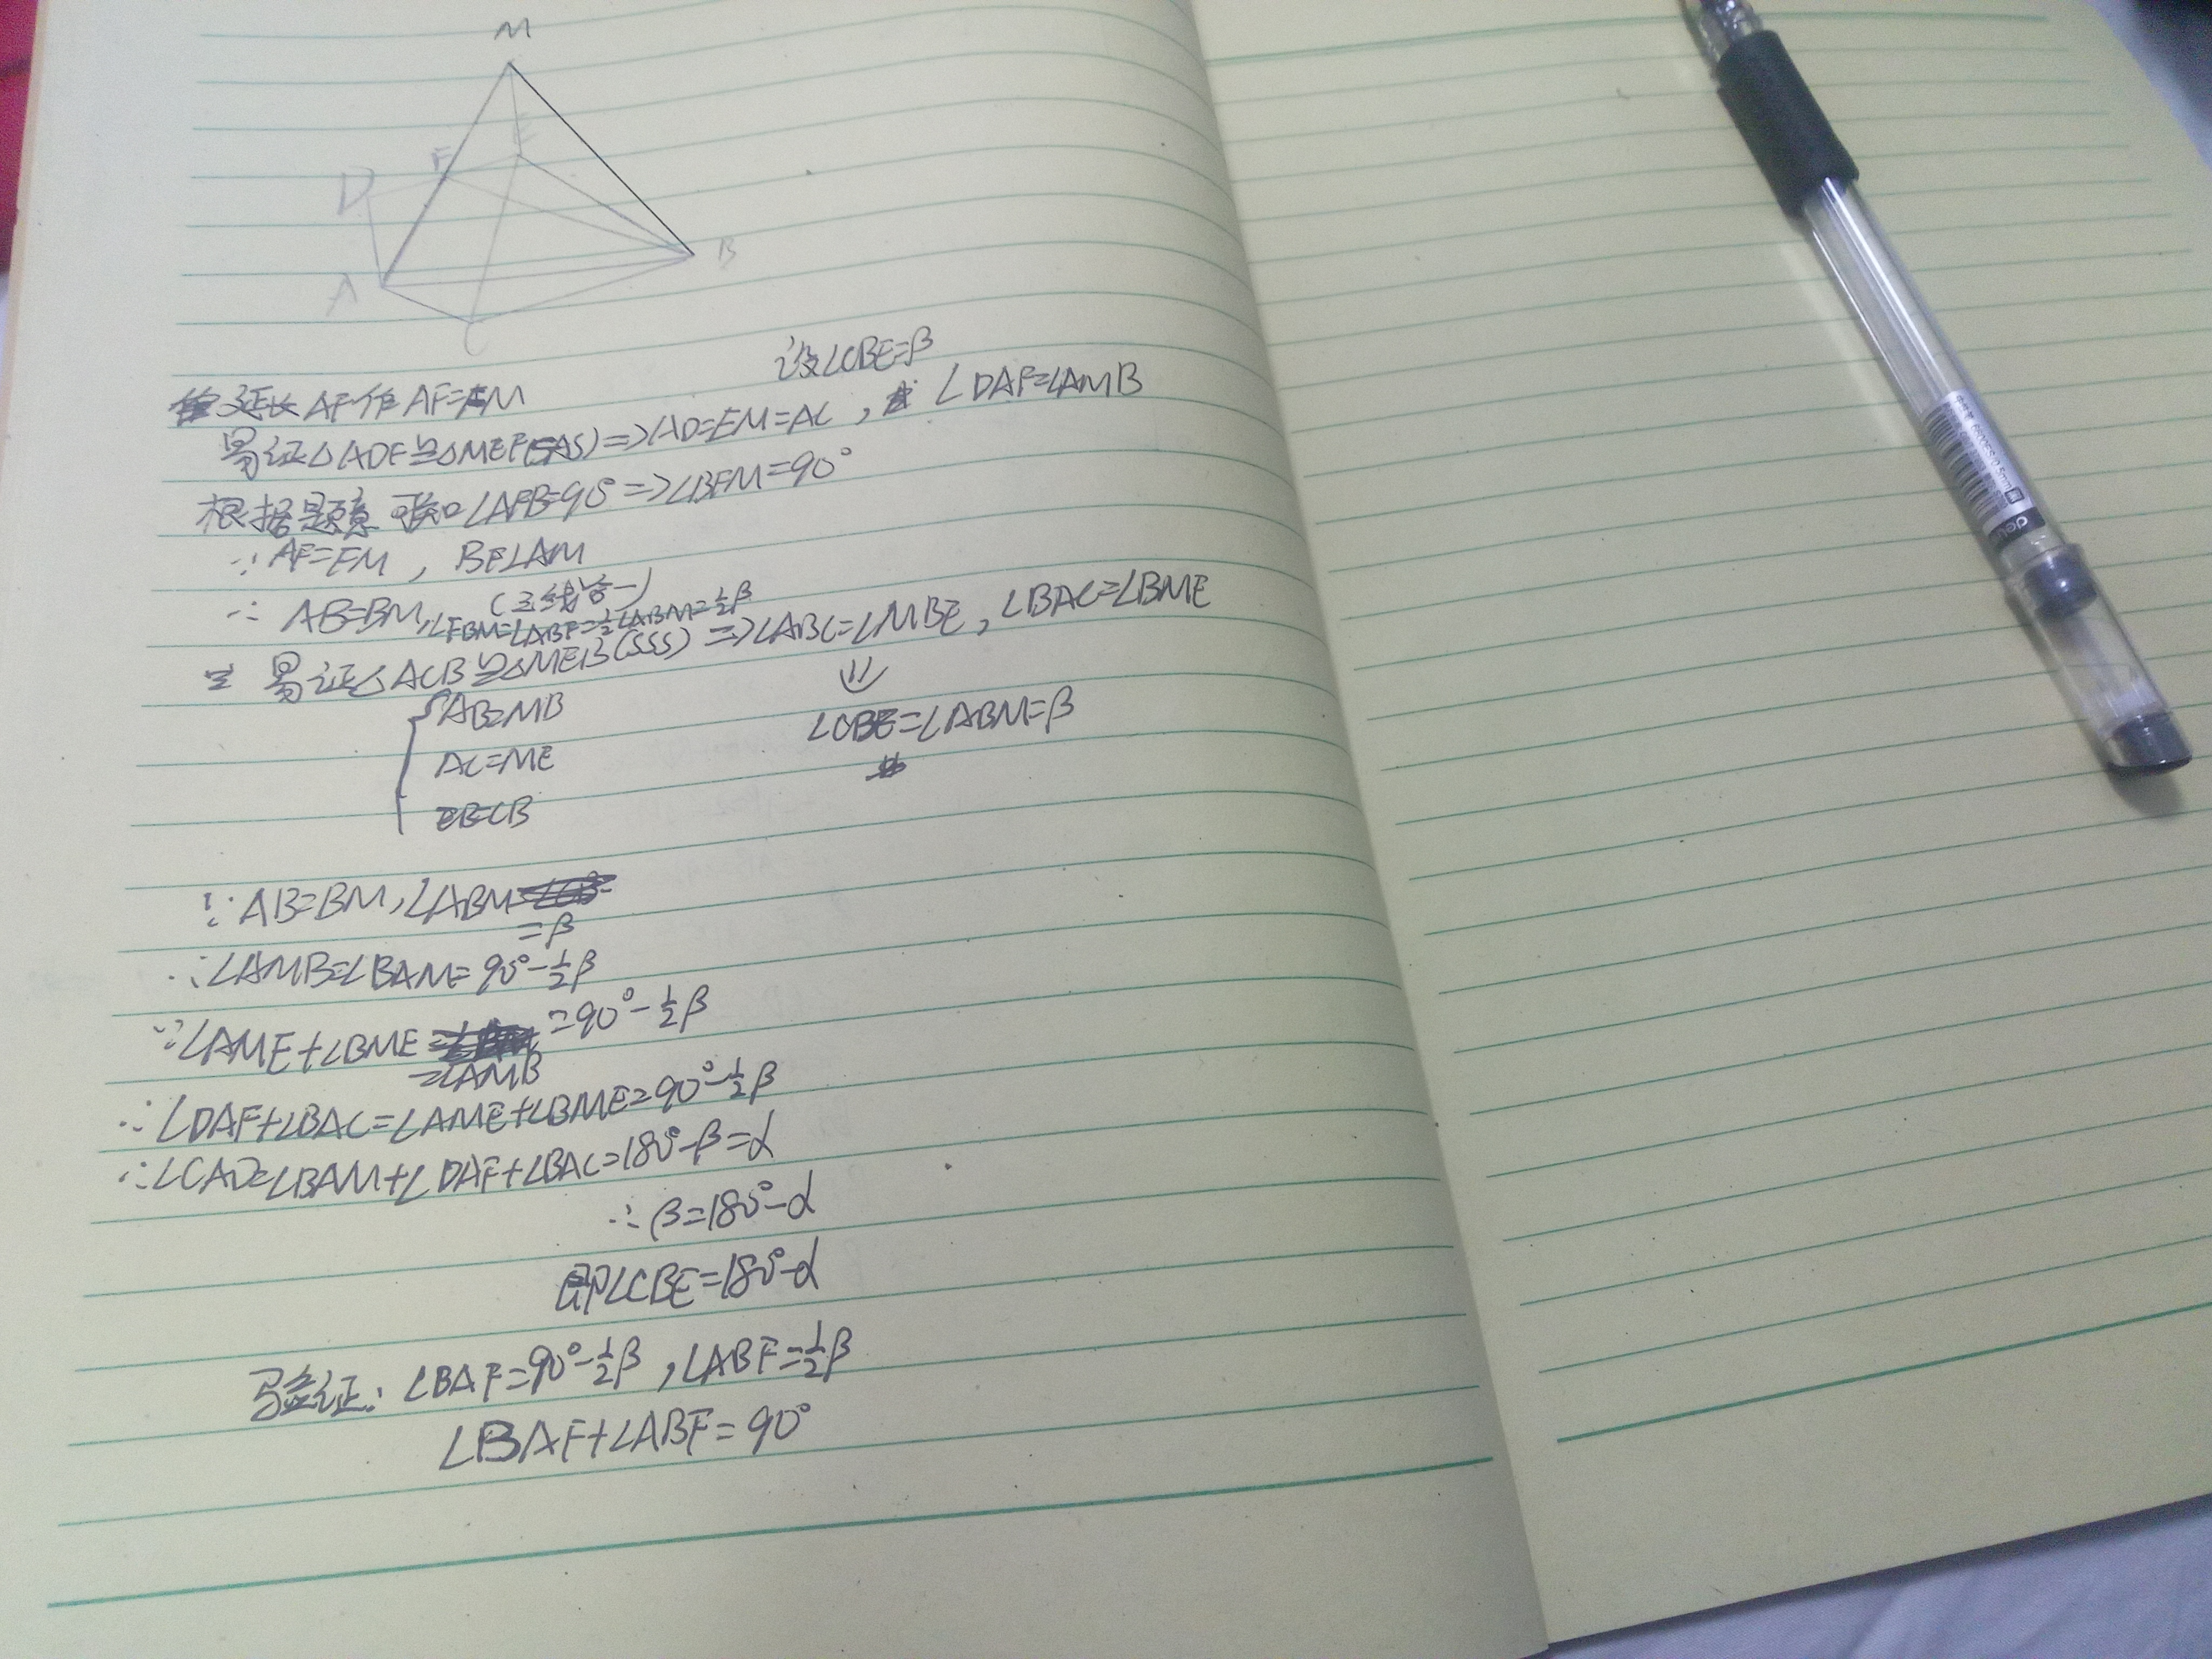 M
E
F
D
B
A
C
设∠CBE=β
延长AF作AF=FM
易证△ADF≌△MEF(SAS)=>AD=EM=AC, ∠DAF=∠AMB
根据题意可知∠AFB=90°=>∠BFM=90°
∵AF=FM, BF⊥AM
(三线合一)
∴AB=BM,∠FBM=∠ABF=½∠ABM=½β
易证△ACB≌△MEB(SSS)=>∠ABC=∠MBE,∠BAC=∠BME
AB=MB
∠CBE=∠ABM=β
AC=ME
EB=CB
∵AB=BM,∠ABM
=β
∴∠AMB=∠BAM=90°-½β
∵∠AME+∠BME =90°-½β
=∠AMB
∴∠DAF+∠BAC=∠AME+∠BME=90°-½β
∴∠CAD=∠BAM+∠DAF+∠BAC=180°-β=α
∴β=180°-α
即∠CBE=180°-α
验证:∠BAF=90°-½β,∠ABF=½β
∠BAF+∠ABF=90°
deli